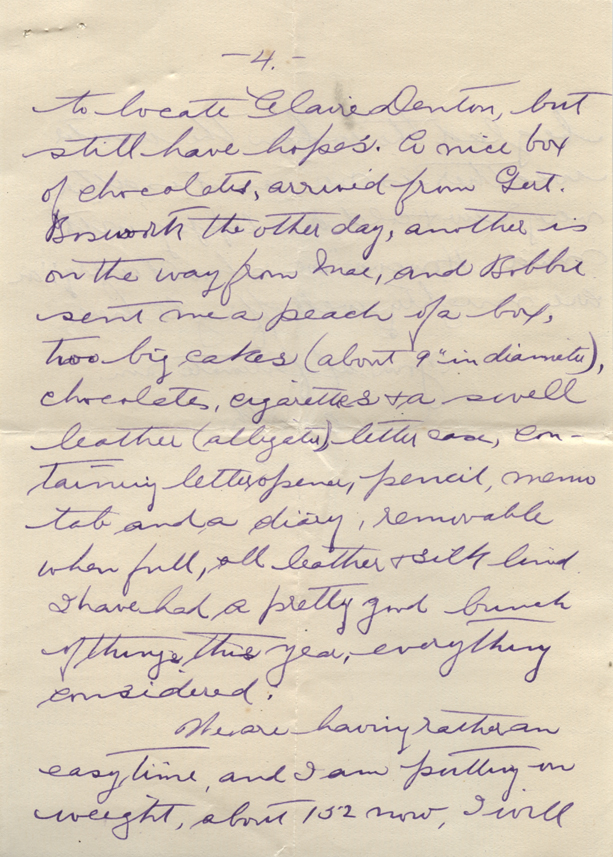 -4.-
to locate Claire Denton, but
still have hopes. A nice box
of chocolates, arrived from Gert.
Bosworth the other day, another is
on the way from Mae, and Bobbie
sent me a peach of a box,
two big cakes (about 9" in diameter),
chocolates, cigarettes & a swell
leather (alligator) letter case, con-
taining letter opener, pencil, memo
tab and a diary, removable
when full, all leather & silk lined
I have had a pretty good bunch
of things this year, everything
considered.
We are having rather an
easy time, and I am putting on
weight, about 152 now, I will